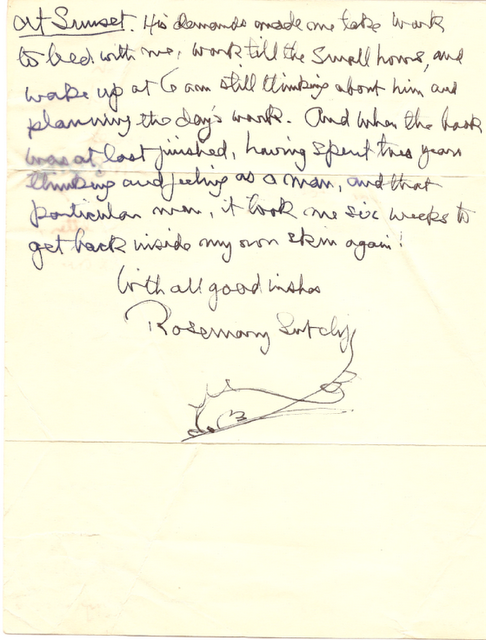 at Sunset. His demands made me take work
to bed with me, work till the small hours, and
wake up at 6 am still thinking about him and
planning the day's work. And when the book
was at last finished, having spent two years
thinking and feeling as a man, and that
particular man, it took me six weeks to
get back inside my own skin again!
With all good wishes
Rosemary Sutcliff